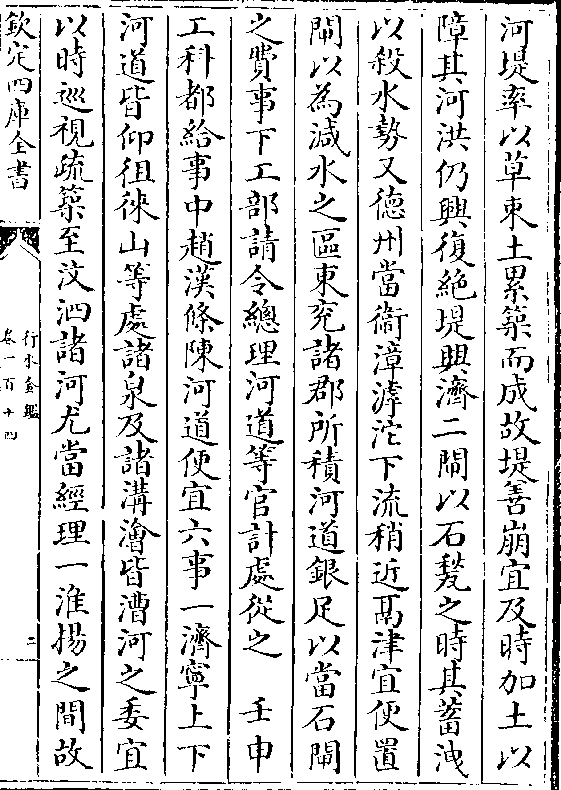 河堤率以草束土累築而成故堤善崩宜及時加土以
障其河洪仍興復絶堤興濟二閘以石甃之時其蓄洩
以殺水勢又德州當衛漳滹沱下流稍近鬲津宜便置
閘以為減水之區東兖諸郡所積河道銀足以當石閘
之費事下工部請令總理河道等官計處從之　壬申
工科都給事中趙漢條陳河道便宜六事一濟寧上下
河道皆仰徂徠山等處諸泉及諸溝澮皆漕河之委宜
以時巡視疏築至汶泗諸河尤當經理一淮揚之間故
欽定四庫全書
行水金鑑
卷一百十四
二